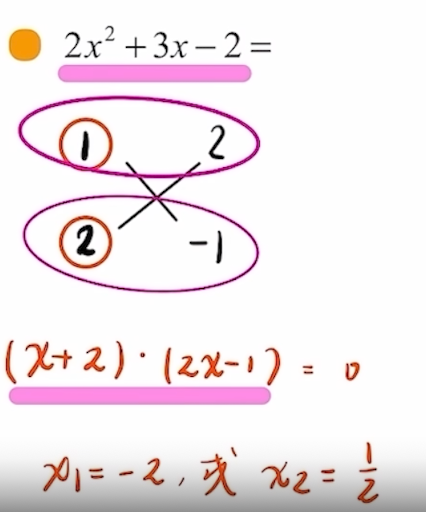 2x² + 3x − 2 =
1 2
2 -1
(x+2)·(2x-1) = 0
x₁ = -2, 或 x₂ = 1/2